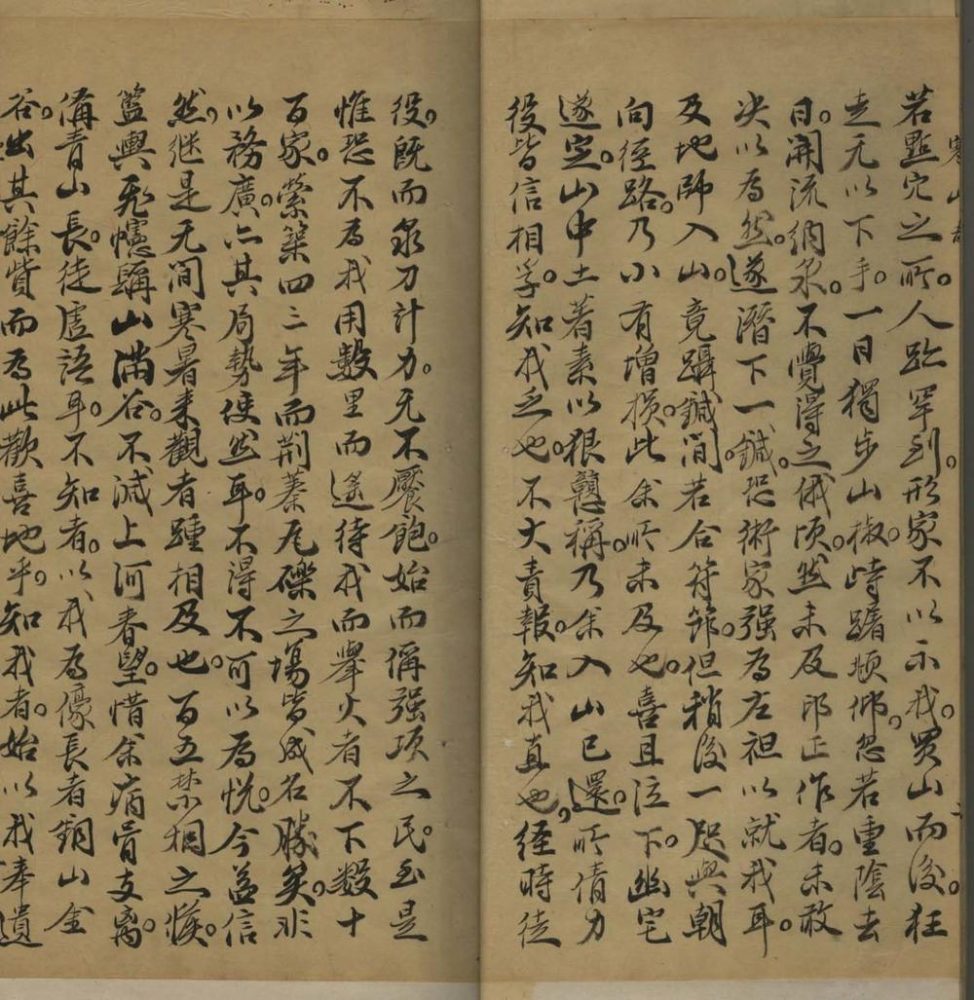 寒山志
若點穴之所。人跡罕到。形家不以示我。買山而後。狂
走无以下手。一日獨步山椒。峙躇傾仰。忽若重陰去
日。開流納泉。不覺得之俄頃。然未及邱正作者。未敢
决以為然。遂潛下一鍼。恐術家强為左袒以就我耳。
及地師入山。竟躡鍼間。若合符節。但稍後一咫與朝
向徑路。乃小有增損。此余所未及也。喜且泣下。幽宅
遂定。山中土著素以狠戇稱。乃余入山已還。所倩力
役皆信相孚。知我乏也。不大責報。知我直也。經時徒
役。既而泉刀計力。无不饜飽。始而偁强項之民。至是
惟恐不為我用數里而遙待我而舉火者不下數十
百家。縈築四三年而荆蓁瓦礫之場皆成名勝矣。非
以務廣。亦其局勢使然耳。不得不可以為悦。今益信
然。继是无間寒暑来觀者踵相及也。百五禁烟之候。
籃輿飛幰騈山滿谷。不減上河春望。惜余病骨支离。
偁青山長。徒虛語耳。不知者。以我為豪長者銅山金
谷。出其餘貲而為此歡喜地乎。知我者。始以我奉遺